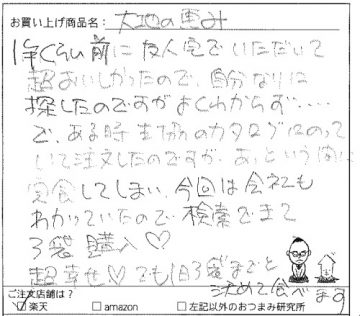 お買い上げ商品名: 大地の恵み
1年くらい前に友人宅でいただいて
超おいしかったので、自分なりに
探したのですがよくわからず……
で、ある時 のカタログにのって
いて注文したのですが、あっという間に
完食してしまい、今回は会社も
わかっていたので、検索できて
3袋購入♡
超幸せ♡でも1日3袋までと
決めて食べます
ご注文店舗は?
☑楽天 □amazon □左記以外のおつまみ研究所